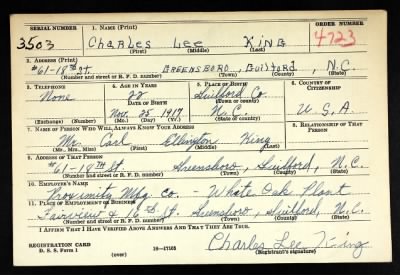 SERIAL NUMBER 1. NAME (Print) ORDER NUMBER
3503 CHARLES LEE KING 4723
(First) (Middle) (Last)
2. ADDRESS (Print)
#61-18th St. GREENSBORO, Guilford, N.C.
(Number and street or R. F. D. number) (Town) (County) (State)
3. TELEPHONE 4. AGE IN YEARS 5. PLACE OF BIRTH 6. COUNTRY OF CITIZENSHIP
None 22 Guilford Co.
DATE OF BIRTH (Town or county)
Nov. 25 1917 N.C. U.S.A.
(Exchange) (Number) (Mo.) (Day) (Yr.) (State or country)
7. NAME OF PERSON WHO WILL ALWAYS KNOW YOUR ADDRESS 8. RELATIONSHIP OF THAT PERSON
Mr. Carl Ellington King
(Mr., Mrs., Miss) (First) (Middle) (Last)
9. ADDRESS OF THAT PERSON
#61-18th St. Greensboro, Guilford, N.C.
(Number and street or R. F. D. number) (Town) (County) (State)
10. EMPLOYER'S NAME
Proximity Mfg Co. - White Oak Plant
11. PLACE OF EMPLOYMENT OR BUSINESS
Fairview & 16th St. Greensboro, Guilford, N.C.
(Number and street or R. F. D. number) (Town) (County) (State)
I AFFIRM THAT I HAVE VERIFIED ABOVE ANSWERS AND THAT THEY ARE TRUE.
REGISTRATION CARD
D. S. S. Form 1 (over) 16-17105 Charles Lee King
(Registrant's signature)